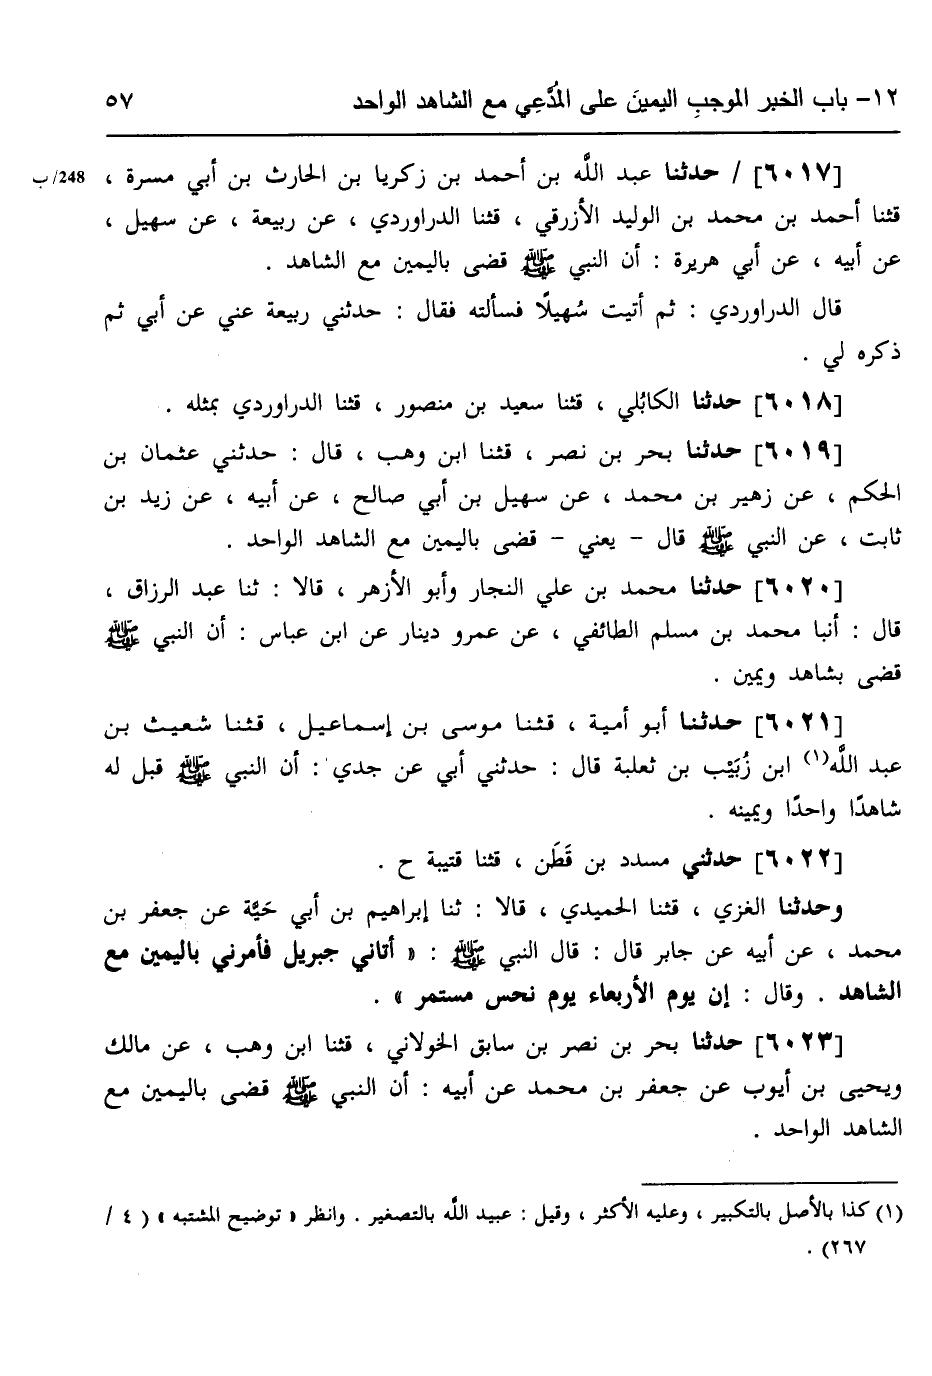 ١٢- باب الخبر الموجبِ اليمينَ على المُدَّعِي مع الشاهد الواحد ٥٧
[٦٠١٧] / حدثنا عبد اللَّه بن أحمد بن زكريا بن الحارث بن أبي مسرة ، 248/ب
قثنا أحمد بن محمد بن الوليد الأزرقي ، قثنا الدراوردي ، عن ربيعة ، عن سهيل ،
عن أبيه ، عن أبي هريرة : أن النبي ﷺ قضى باليمين مع الشاهد .
قال الدراوردي : ثم أتيت سُهيلًا فسألته فقال : حدثني ربيعة عني عن أبي ثم
ذكره لي .
[٦٠١٨] حدثنا الكابُلي ، قثنا سعيد بن منصور ، قثنا الدراوردي بمثله .
[٦٠١٩] حدثنا بحر بن نصر ، قثنا ابن وهب ، قال : حدثني عثمان بن
الحكم ، عن زهير بن محمد ، عن سهيل بن أبي صالح ، عن أبيه ، عن زيد بن
ثابت ، عن النبي ﷺ قال - يعني - قضى باليمين مع الشاهد الواحد .
[٦٠٢٠] حدثنا محمد بن علي النجار وأبو الأزهر ، قالا : ثنا عبد الرزاق ،
قال : أنبا محمد بن مسلم الطائفي ، عن عمرو دينار عن ابن عباس : أن النبي ﷺ
قضى بشاهد ويمين .
[٦٠٢١] حدثنا أبو أمية ، قثنا موسى بن إسماعيل ، قثنا شعيث بن
عبد اللَّه(١) ابن زُبَيْب بن ثعلبة قال : حدثني أبي عن جدي : أن النبي ﷺ قبل له
شاهدًا واحدًا ويمينه .
[٦٠٢٢] حدثني مسدد بن قَطَن ، قثنا قتيبة ح .
وحدثنا الغزي ، قثنا الحميدي ، قالا : ثنا إبراهيم بن أبي حَيَّة عن جعفر بن
محمد ، عن أبيه عن جابر قال : قال النبي ﷺ : « أتاني جبريل فأمرني باليمين مع
الشاهد . وقال : إن يوم الأربعاء يوم نحس مستمر » .
[٦٠٢٣] حدثنا بحر بن نصر بن سابق الخولاني ، قثنا ابن وهب ، عن مالك
ويحيى بن أيوب عن جعفر بن محمد عن أبيه : أن النبي ﷺ قضى باليمين مع
الشاهد الواحد .
(١) كذا بالأصل بالتكبير ، وعليه الأكثر ، وقيل : عبيد اللَّه بالتصغير . وانظر « توضيح المشتبه » ( ٤ /
٢٦٧) .